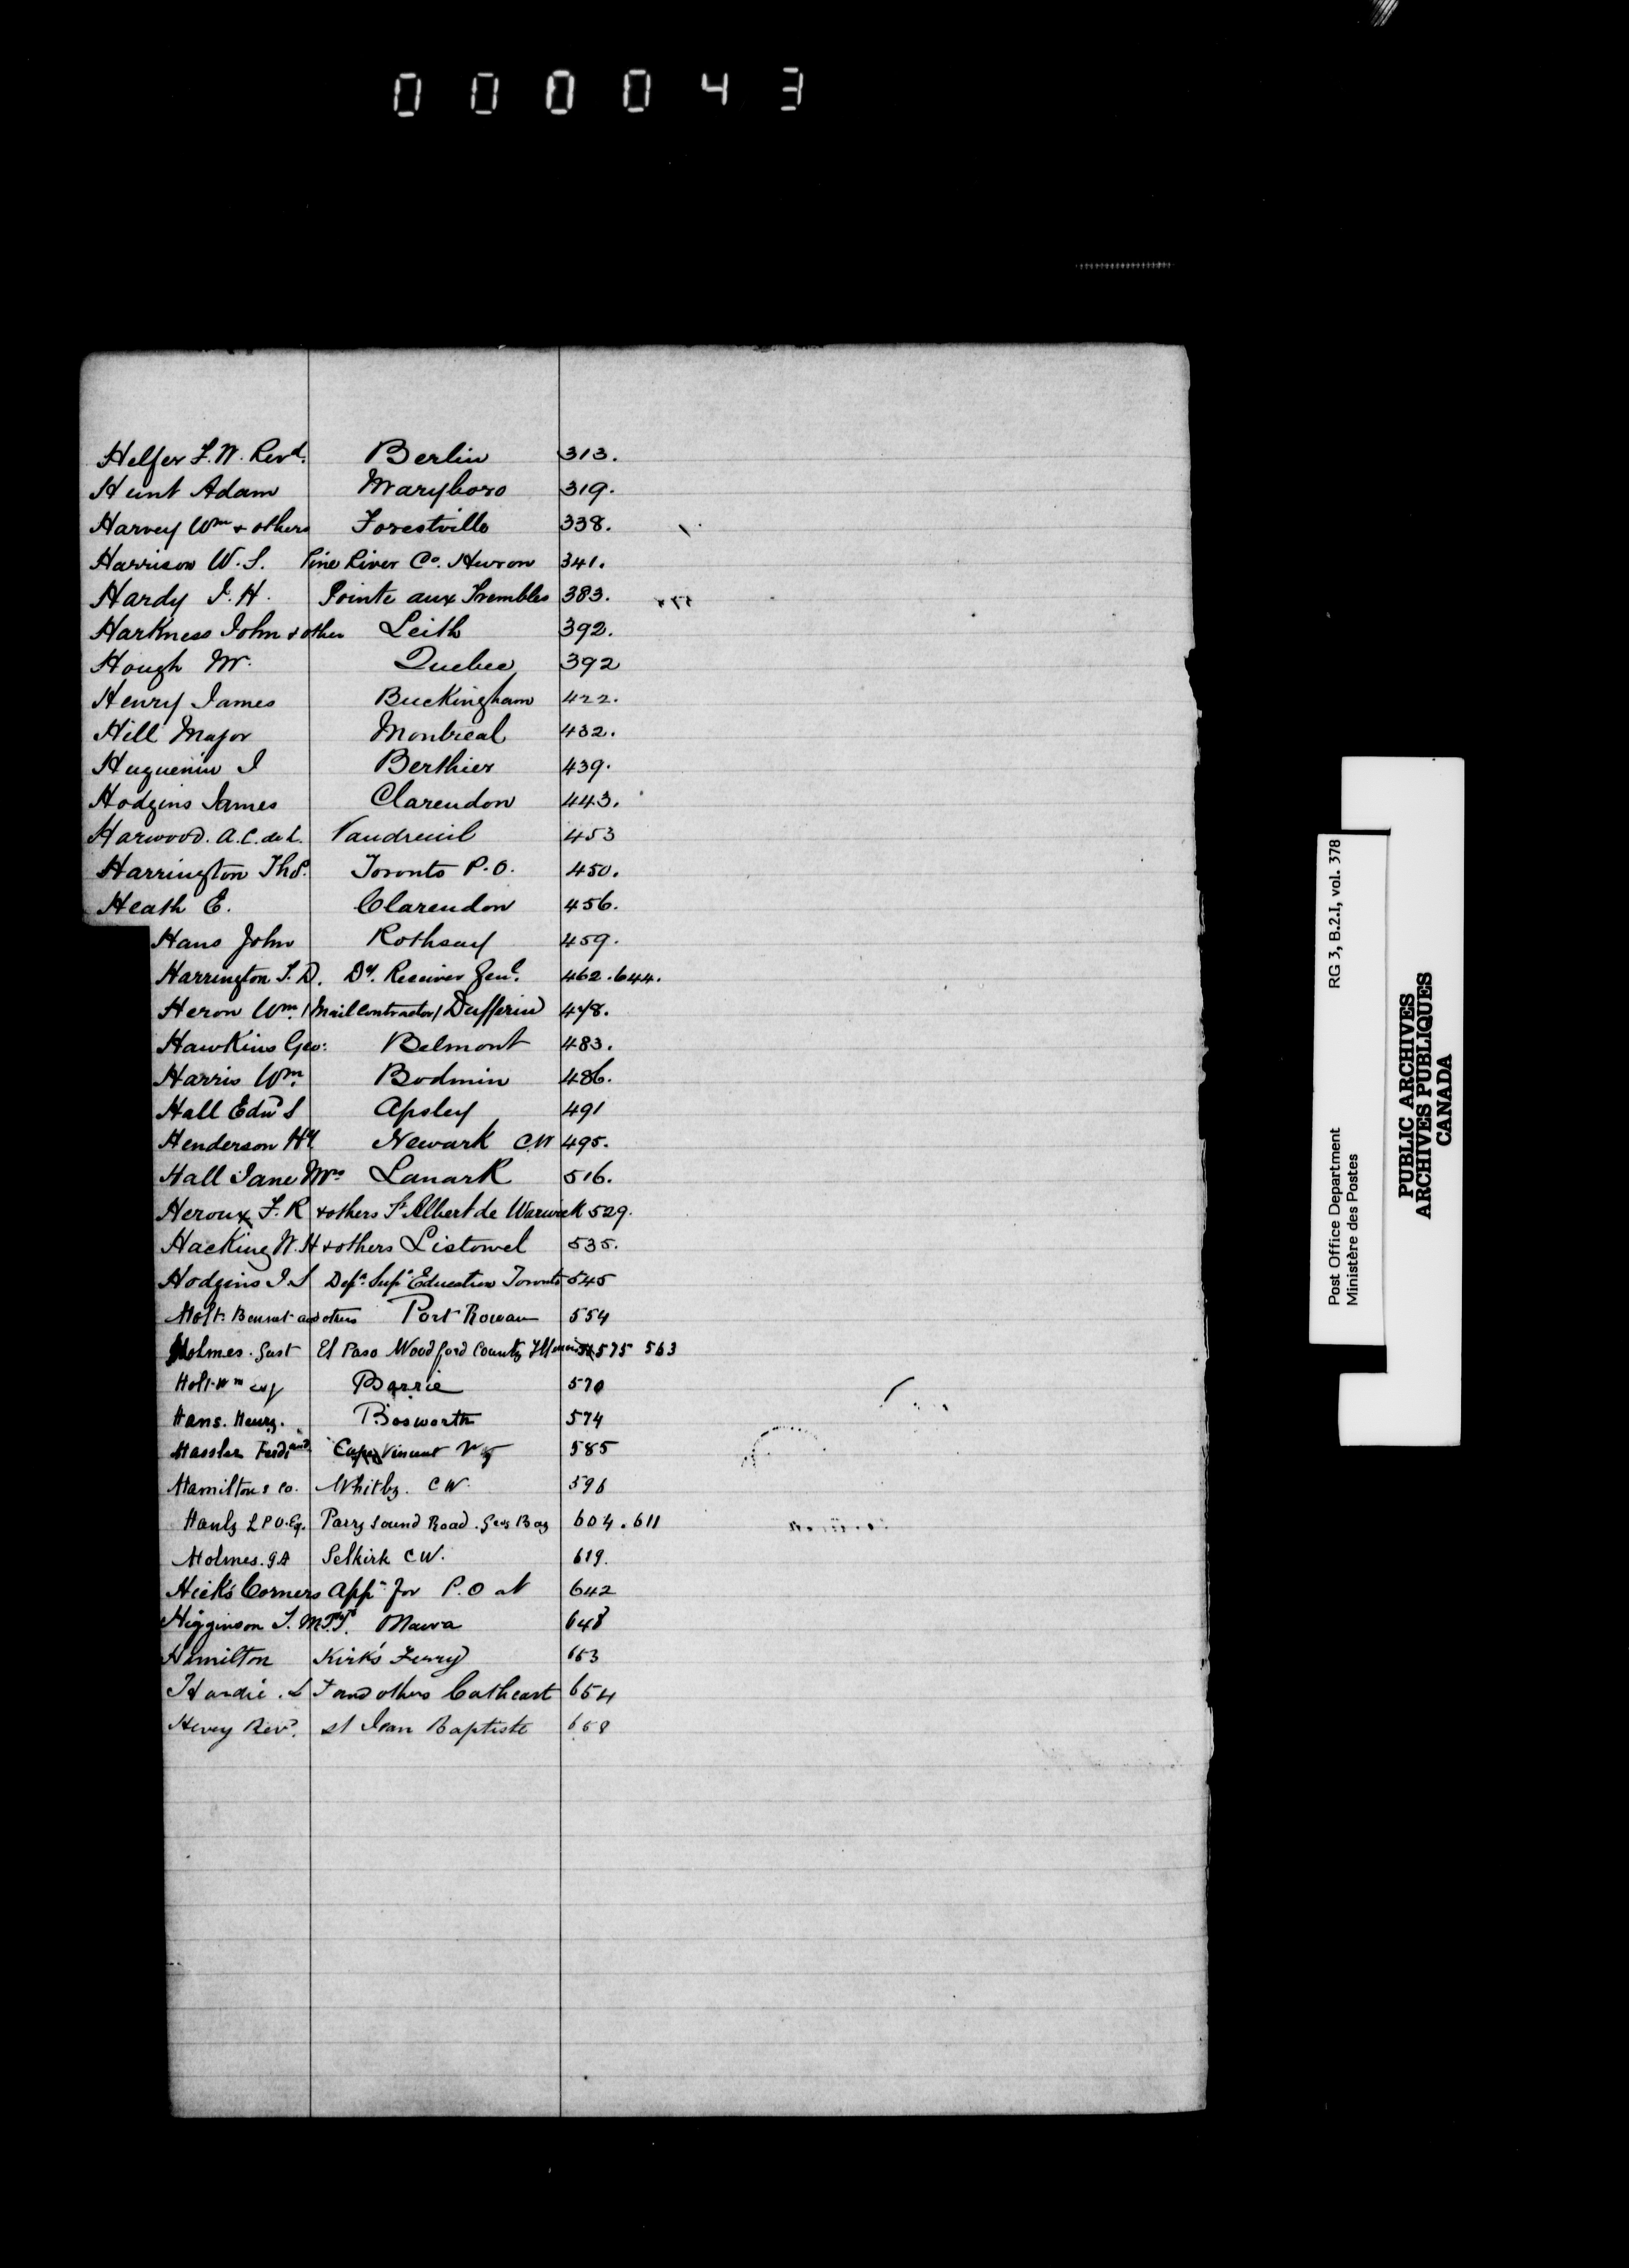 000043
Helfer F. W. Revd. Berlin 313.
Hunt Adam Maryboro 319.
Harvey Wm & others Forestville 338.
Harrison W. S. Pine River Co. Huron 341.
Hardy J. H. Pointe aux Trembles 383.
Harkness John & other Leith 392.
Hough Mr. Quebec 392
Henry James Buckingham 422.
Hill Major Montreal 432.
Huguenin J Berthier 439.
Hodgins James Clarendon 443.
Harwood. A. C. de L. Vaudreuil 453
Harrington Thos. Toronto P.O. 450.
Heath E. Clarendon 456.
Hans John Rothsay 459.
Harrington T. D. Dy. Receiver Genl. 462.644.
Heron Wm. (Mail Contractor) Dufferin 478.
Hawkins Geo: Belmont 483.
Harris Wm. Bodmin 486.
Hall Edwd S Apsley 491
Henderson Hy. Newark C.W 495.
Hall Jane Mrs Lanark 516.
Heroux F. R & others St. Albert de Warwick 529.
Hacking W. H & others Listowel 535.
Hodgins J. S Depy. Supt. Education Toronto 545
Holt. Bennet and others Port Rowan 554
Holmes. Gust El Paso Woodford County Illinois 575 563
Holt Wm esq Barrie 570
Hans. Henry. Bosworth 574
Hassler Ferdinand Cape Vincent NY 585
Hamilton & Co. Whitby. CW. 596
L P O. Eq. Parry Sound Road. Geo Bay 604.611
Holmes. G A Selkirk CW. 619.
Hick's Corners Appn for P.O at 642
Higginson T. M.P.P. 648
Hamilton Kirk's Ferry 653
Hardie. L T and others Cathcart 654
Revd. St Jean Baptiste 658
RG 3, B.2.I, vol. 378
Post Office Department
Ministère des Postes
PUBLIC ARCHIVES
ARCHIVES PUBLIQUES
CANADA